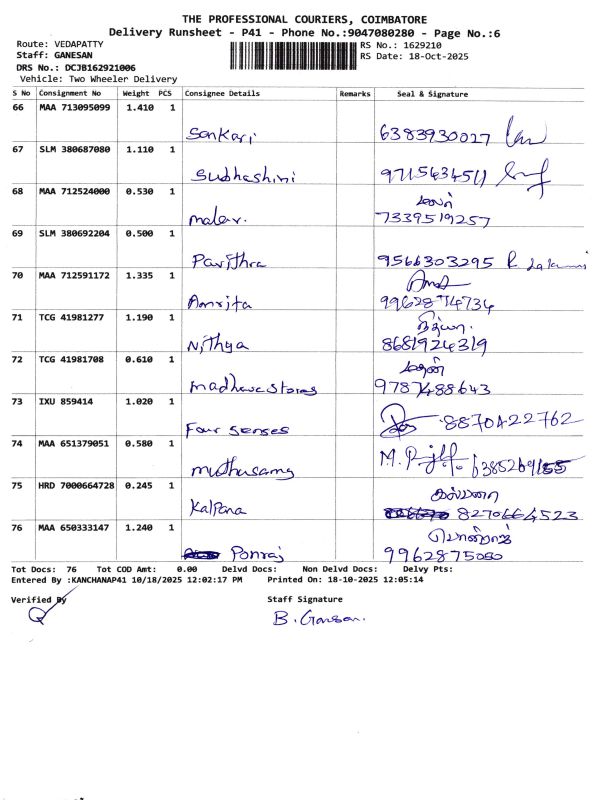 THE PROFESSIONAL COURIERS, COIMBATORE
Delivery Runsheet - P41 - Phone No.:9047080280 - Page No.:6
Route: VEDAPATTY
RS No.: 1629210
Staff: GANESAN
RS Date: 18-Oct-2025
DRS No.: DCJB162921006
Vehicle: Two Wheeler Delivery
S No Consignment No Weight PCS Consignee Details Remarks Seal & Signature
66 MAA 713095099 1.410 1
Sankari 6383930027
67 SLM 380687080 1.110 1
Subhashini 9715434511
68 MAA 712524000 0.530 1
மலர்
malar. 7339519257
69 SLM 380692204 0.500 1
Pavithra 9566303295
70 MAA 712591172 1.335 1
Amrita 9962874734
71 TCG 41981277 1.190 1
நித்யா.
Nithya 8681924319
72 TCG 41981708 0.610 1
madhava stores 9787488643
73 IXU 859414 1.020 1
Four senses 8870422762
74 MAA 651379051 0.580 1
muthusamy M.P
75 HRD 7000664728 0.245 1
கல்பனா
Kalpana 8270664523
76 MAA 650333147 1.240 1
பொன்ராஜ்
Ponraj 9962875050
Tot Docs: 76 Tot COD Amt: 0.00 Delvd Docs: Non Delvd Docs: Delvy Pts:
Entered By :KANCHANAP41 10/18/2025 12:02:17 PM Printed On: 18-10-2025 12:05:14
Verified By Staff Signature
B. Gansan.